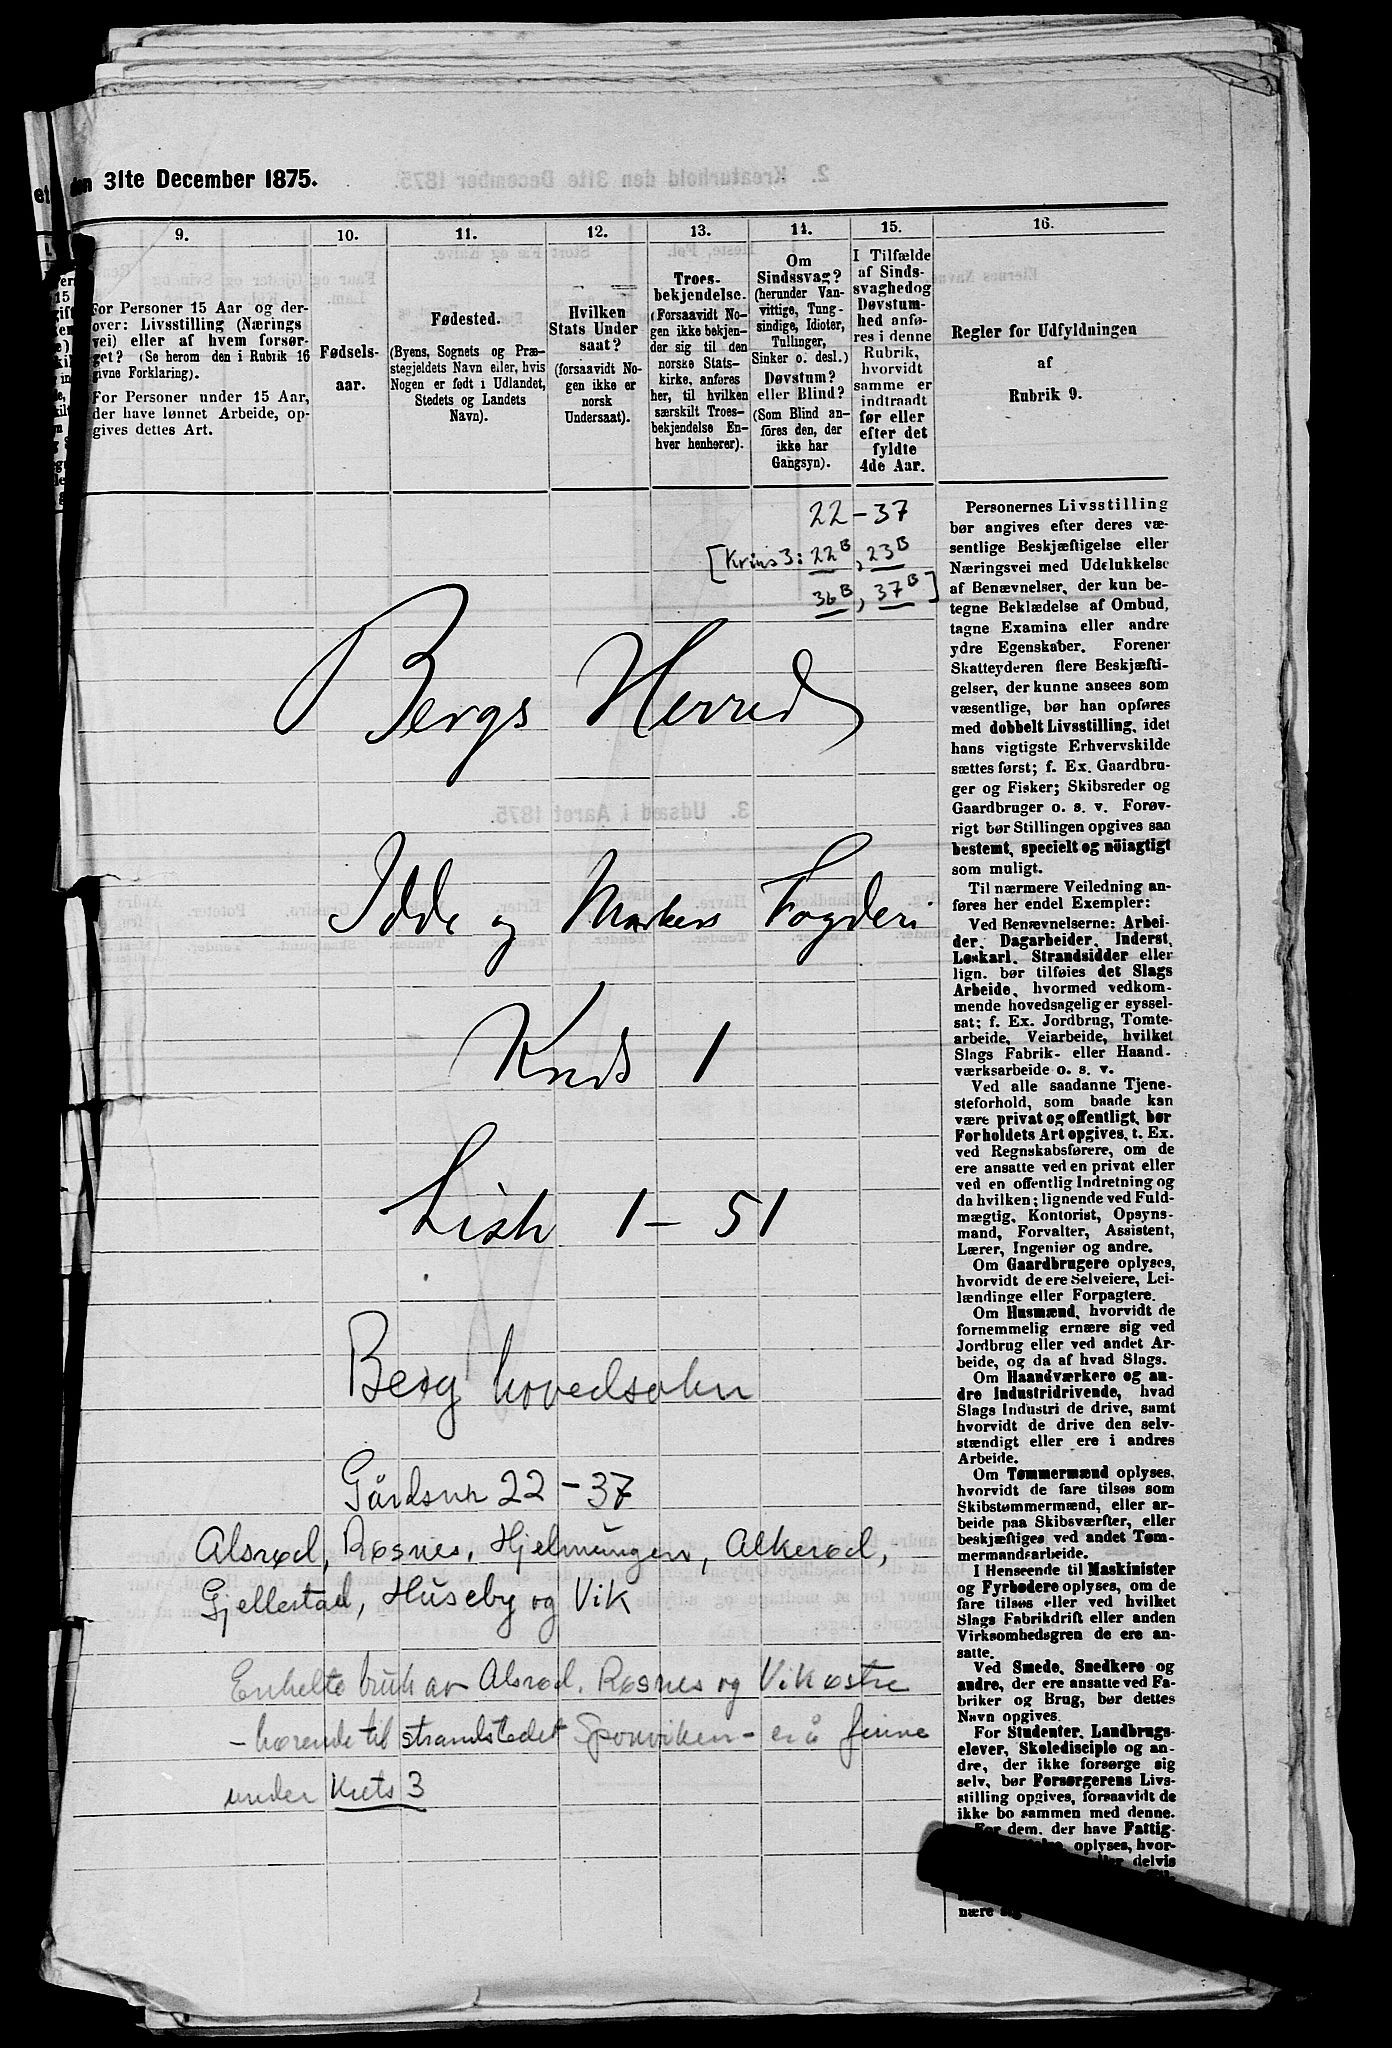 den 31te December 1875.
9.
For Personer 15 Aar og der-
over: Livsstilling (Nærings
vei) eller af hvem forsør-
get? (Se herom den i Rubrik 16
givne Forklaring).
For Personer under 15 Aar,
der have lønnet Arbeide, op-
gives dettes Art.
10.
Fødsels-
aar.
11.
Fødested.
(Byens, Sognets og Præ-
stegjeldets Navn eller, hvis
Nogen er født i Udlandet,
Stedets og Landets
Navn).
12.
Hvilken
Stats Under
saat?
(forsaavidt No-
gen ikke er
norsk
Undersaat).
13.
Troes-
bekjendelse.
(Forsaavidt No-
gen ikke bekjen-
der sig til den
norske Stats-
kirke, anføres
her, til hvilken
særskilt Troes-
bekjendelse En-
hver henhører).
14.
Om
Sindssvag?
(herunder Van-
vittige, Tung-
sindige, Idioter,
Tullinger,
Sinker o. desl.)
Døvstum?
eller Blind?
(Som Blind an-
føres den, der
ikke har
Gangsyn).
15.
I Tilfælde
af Sinds-
svaghedog
Døvstum-
hed anfø-
res i denne
Rubrik,
hvorvidt
samme er
indtraadt
før eller
efter det
fyldte
4de Aar.
16.
Regler for Udfyldningen
af
Rubrik 9.
22 - 37
[Krins 3: 22B, 23B
36B, 37B]
Bergs Herred
Idde og Markers Fogderi
Kreds 1
Liste 1 - 51
Berg hovedsokn
Gårdsnr 22 - 37
Alsrød, Røsnes, Hjelmungen, Alkerød,
Gjellestad, Huseby og Vik
Enkelte bruk av Alsrød, Røsnes og Vik østre
- hørende til strandstedet Sponviken - er å finne
under Krets 3
Personernes Livsstilling
bør angives efter deres væ-
sentlige Beskjæftigelse eller
Næringsvei med Udelukkelse
af Benævnelser, der kun be-
tegne Beklædelse af Ombud,
tagne Examina eller andre
ydre Egenskaber. Forener
Skatteyderen flere Beskjæfti-
gelser, der kunne ansees som
væsentlige, bør han opføres
med dobbelt Livsstilling, idet
hans vigtigste Erhvervskilde
sættes først; f. Ex. Gaardbru-
ger og Fisker; Skibsreder og
Gaardbruger o. s. v. Forøv-
rigt bør Stillingen opgives saa
bestemt, specielt og nöiagtigt
som muligt.
Til nærmere Veiledning an-
føres her endel Exempler:
Ved Benævnelserne: Arbei-
der, Dagarbeider, Inderst,
Løskarl, Strandsidder eller
lign. bør tilføies det Slags
Arbeide, hvormed vedkom-
mende hovedsagelig er syssel-
sat; f. Ex. Jordbrug, Tomte-
arbeide, Veiarbeide, hvilket
Slags Fabrik- eller Haand-
værksarbeide o. s. v.
Ved alle saadanne Tjene-
steforhold, som baade kan
være privat og offentligt, bør
Forholdets Art opgives, t. Ex.
ved Regnskabsførere, om de
ere ansatte ved en privat eller
ved en offentlig Indretning og
da hvilken; lignende ved Fuld-
mægtig, Kontorist, Opsyns-
mand, Forvalter, Assistent,
Lærer, Ingeniør og andre.
Om Gaardbrugere oplyses,
hvorvidt de ere Selveiere, Lei-
lændinge eller Forpagtere.
Om Husmænd, hvorvidt de
fornemmelig ernære sig ved
Jordbrug eller ved andet Ar-
beide, og da af hvad Slags.
Om Haandværkere og an-
dre Industridrivende, hvad
Slags Industri de drive, samt
hvorvidt de drive den selv-
stændigt eller ere i andres
Arbeide.
Om Tømmermænd oplyses,
hvorvidt de fare tilsøs som
Skibstømmermænd, eller ar-
beide paa Skibsværfter, eller
beskjæftiges ved andet Tøm-
mermandsarbeide.
I Henseende til Maskinister
og Fyrbødere oplyses, om de
fare tilsøs eller ved hvilket
Slags Fabrikdrift eller anden
Virksomhedsgren de ere an-
satte.
Ved Smede, Snedkere og
andre, der ere ansatte ved Fa-
briker og Brug, bør dettes
Navn opgives.
For Studenter, Landbrugs-
elever, Skoledisciple og an-
dre, der ikke forsørge sig
selv, bør Forsørgerens Livs-
stilling opgives, forsaavidt de
ikke bo sammen med denne.
For dem, der have Fattig-
oplyses, hvor-
delvis
nære sig